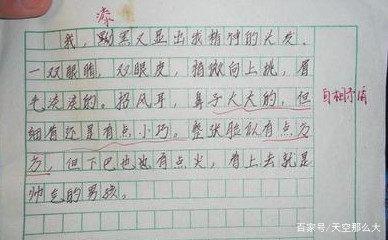 漆
我，黝黑又显出我精神的头发。
一双眼睛，双眼皮，稍微向上挑，眉
毛淡淡的。招风耳，鼻子大大的，但
细看还是有点小巧。整张脸似有点方
方，但下巴也也有点尖，看上去就是
帅气的男孩。
自相矛盾
百家号/天空那么大